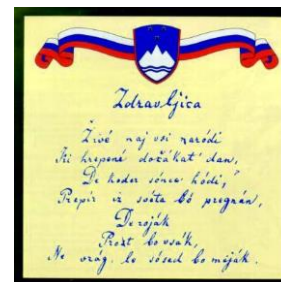 Zdravljica
Živé naj vsi naródi
Ki hrepené dočákat' dan,
De koder sónce hódi,
Prepir iz svéta bó pregnán,
De roják
Prost bo vsák,
Ne vrag, le sósed bo meják.